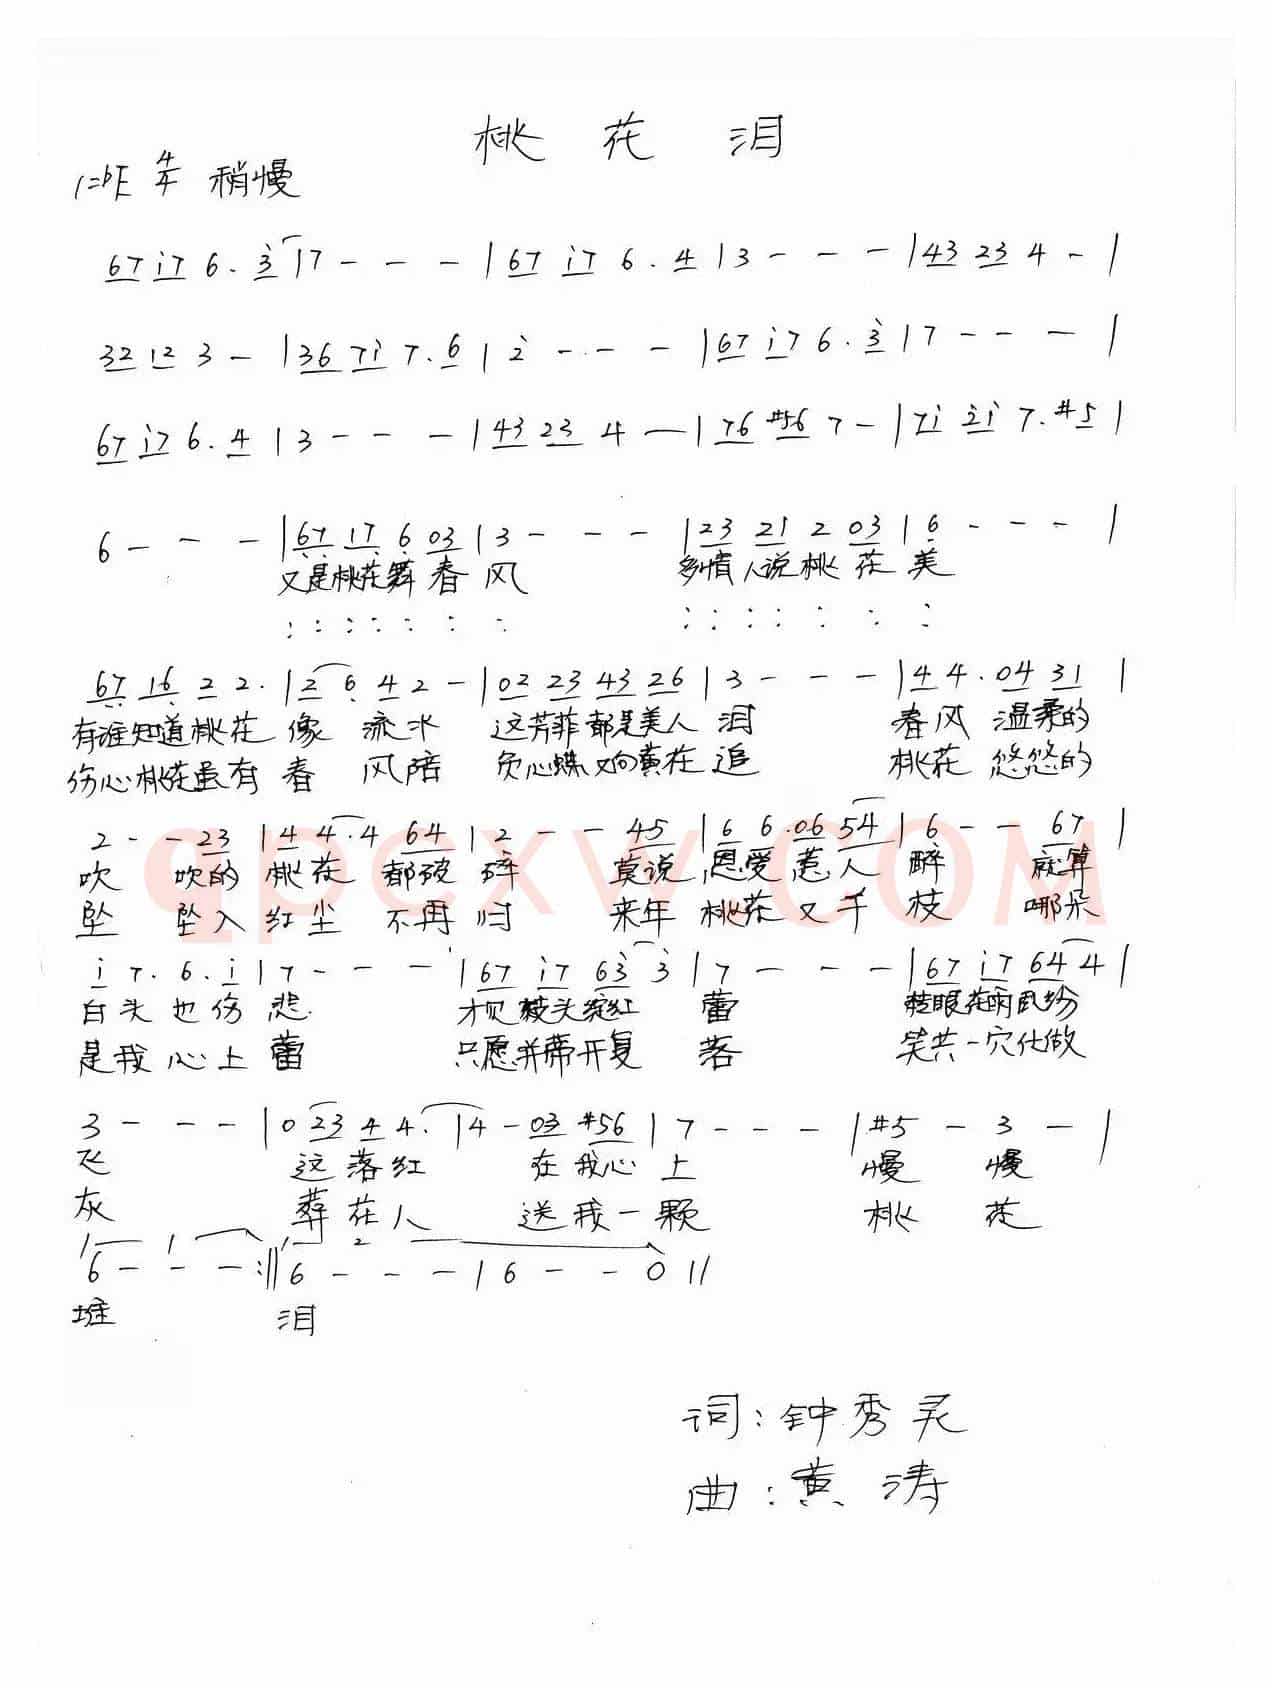 桃花泪
1=bE 4/4 稍慢
67 i7 6. 3 | 7 - - - | 67 i7 6. 4 | 3 - - - | 43 23 4 - |
32 12 3 - | 36 7i 7. 6 | 2 - - - | 67 i7 6. 3 | 7 - - - |
67 i7 6. 4 | 3 - - - | 43 23 4 — | 76 #56 7 - | 7i 2i 7. #5 |
6 - - - | 67 17 6 03 | 3 - - - | 23 21 2 03 | 6 - - - |
又是桃花舞春风 多情人说桃花美
67 16 2 2. | 2 6 4 2 - | 02 23 43 26 | 3 - - - | 4 4. 04 31 |
有谁知道桃花像流水 这芳菲都是美人泪 春风温柔的
伤心桃花虽有春风陪 负心蝶又向黄花追 桃花悠悠的
2 - - 23 | 4 4. 4 64 | 2 - - 45 | 6 6. 06 54 | 6 - - 67 |
吹 吹的桃花都破碎 莫说恩爱惹人醉 就算
坠 坠入红尘不再归 来年桃花又千枝 哪朵
i 7. 6. i | 7 - - - | 67 i7 63 3 | 7 - - - | 67 i7 64 4 |
白头也伤悲 才见枝头绽红蕾 转眼花雨乱纷
是我心上蕾 只愿并蒂开复落 笑共一穴化做
3 - - - | 0 23 4 4. | 4 - 03 #56 | 7 - - - | #5 - 3 - |
飞 这落红 在我心上 慢慢
灰 葬花人 送我一颗 桃花
6 - - - :|| 6 - - - | 6 - - 0 ||
堆 泪
词:钟秀灵
曲:黄涛
qpcxw.COM